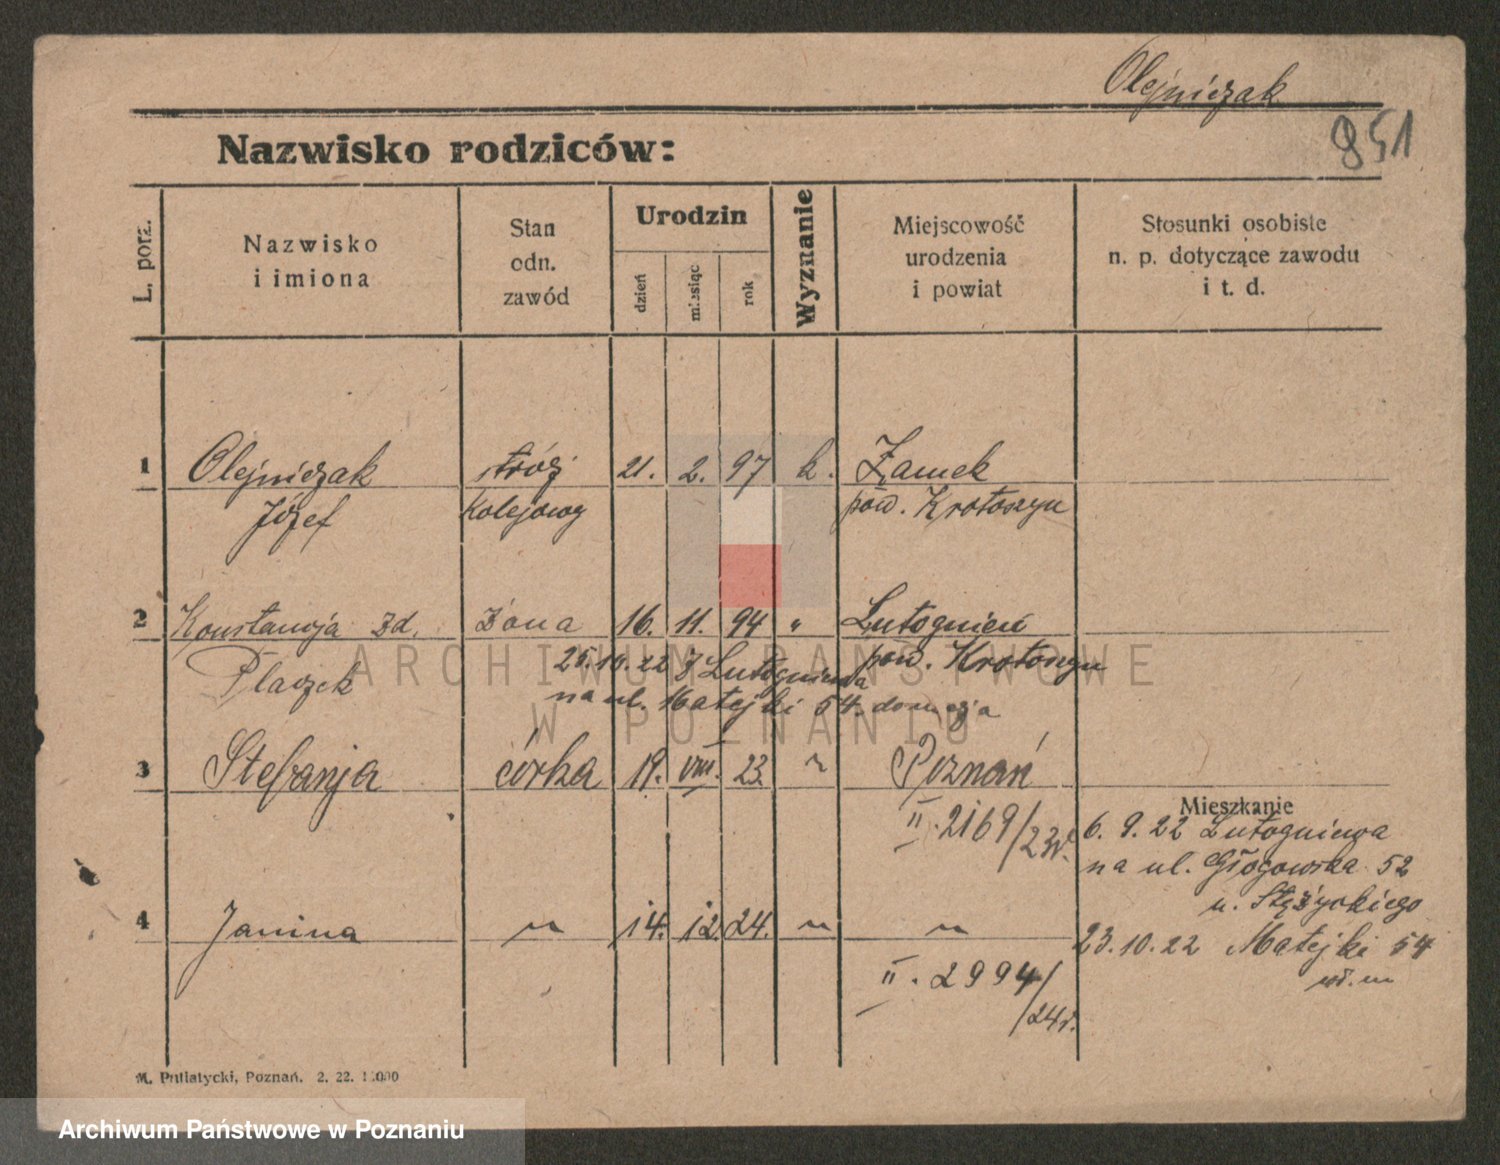 Olejniczak
851
Nazwisko rodziców:
L. porz.
Nazwisko
i imiona
Stan
odn.
zawód
Urodzin
dzień
miesiąc
rok
Wyznanie
Miejscowość
urodzenia
i powiat
Stosunki osobiste
n. p. dotyczące zawodu
i t. d.
1 Olejniczak stróż 21. 2. 97 k. Zamek
Józef kolejowy pow. Krotoszyn
2 Konstancja zd. żona 16. 11. 94 " Lutogniew
Placzek pow. Krotoszyn
25.10.22 z Lutogniewa
na ul. Matejki 54.
3 Stefanja córka 19. VIII. 23. " Poznań
II. 2169/23r.
Mieszkanie
6. 9. 22 Lutogniewa
na ul. Głogowska 52
u. Stężyckiego
4 Janina " 14. 12. 24. " "
23.10.22 Matejki 54
II. 2994/24r.
M. Putiatycki, Poznań. 2. 22.
ARCHIWUM PAŃSTWOWE
W POZNANIU
Archiwum Państwowe w Poznaniu